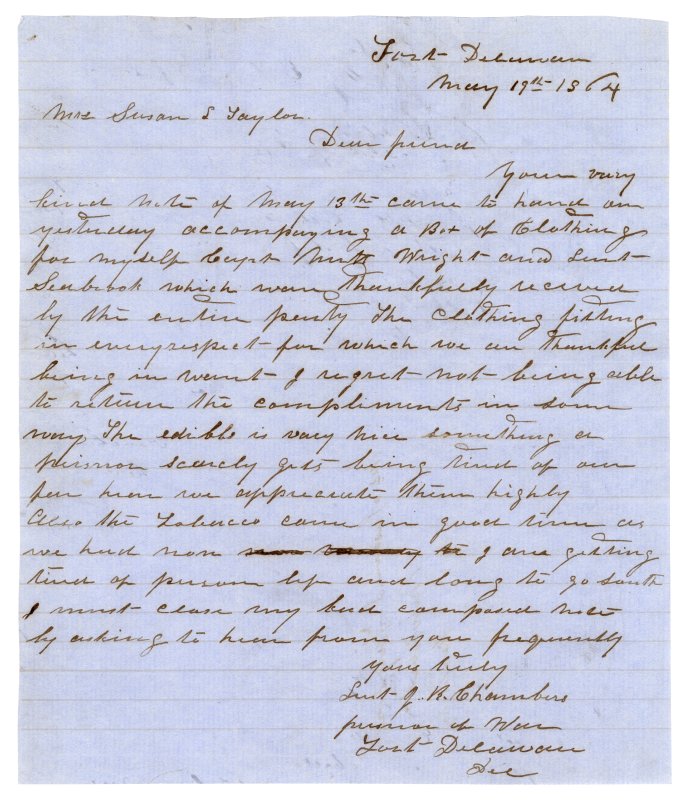 Fort Delaware
May 19th 1864
Mrs Susan S Taylor.
Dear friend
Your vary
kind note of May 13th came to hand on
yesterday accompaying a Box of Clothing
for myself Capt Wright and Lieut
Seabrook which were thankfully received
by the entire party The clothing fitting
in everyrespect for which we are thankful
being in want I regret not being able
to return the compliments in some
way. The edible is vary nice something a
prisnor scarcly gets being tired of our
fare here we appreciate them highly
Also the Tobacco came in good time as
we had non I are getting
tired of prison life and long to go South
I must close my bad composed note
by asking to hear from you frequently
yours truly
Lieut J. R. Chambers
prisnor of War
Fort Delaware
Del